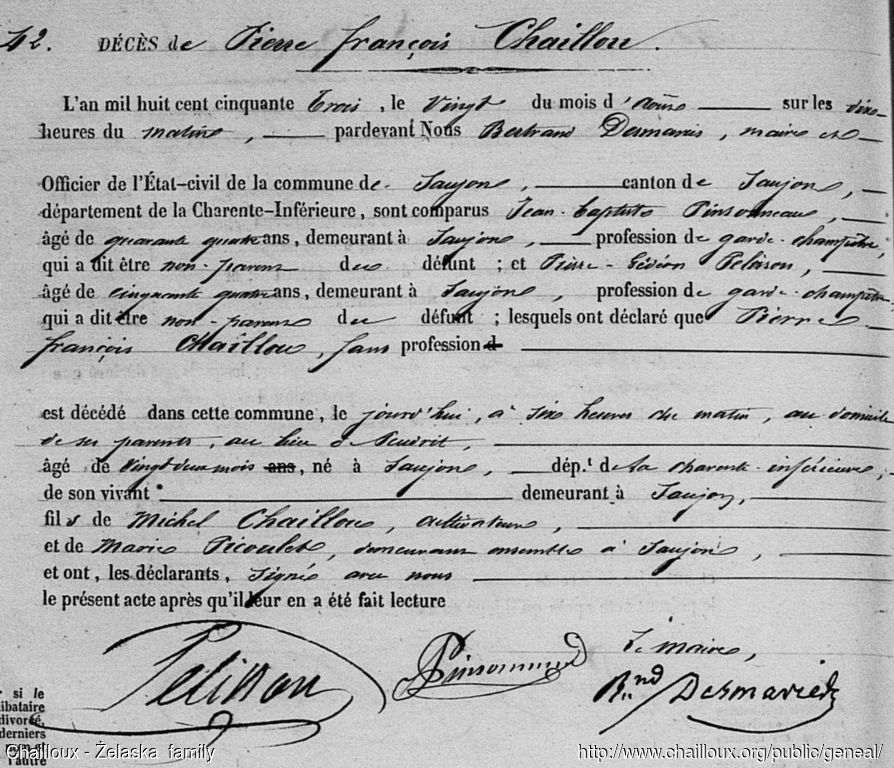 42. DÉCÈS de Pierre françois Chaillou.
L'an mil huit cent cinquante trois, le vingt du mois d'Août sur les dix
heures du matin, pardevant Nous Bertrand Desmaries, maire et
Officier de l'État-civil de la commune de Saujon, canton de Saujon,
département de la Charente-Inférieure, sont comparus Jean-Baptiste Pinsonneau,
âgé de quarante quatre ans, demeurant à Saujon, profession de garde-champêtre,
qui a dit être non-parent du défunt ; et Pierre-Gédéon Pelisson,
âgé de cinquante quatre ans, demeurant à Saujon, profession de garde-champêtre
qui a dit être non-parent du défunt ; lesquels ont déclaré que Pierre
françois Chaillou, sans profession d
est décédé dans cette commune, le jourd'hui, à six heures du matin, au domicile
de ses parents, au lieu de
âgé de vingt deux mois ans, né à Saujon, dép.t de la charente-inférieure,
de son vivant demeurant à Saujon,
fils de Michel Chaillou, cultivateur,
et de Marie Picoulet, demeurant ensemble à Saujon,
et ont, les déclarants, signé avec nous
le présent acte après qu'il leur en a été fait lecture
Pelisson Pinsonneau Le maire,
B.nd Desmaries
si le
libataire
divorcé,
derniers
om et
l'autre
Chailloux - Żelaska family http://www.chailloux.org/public/geneal/